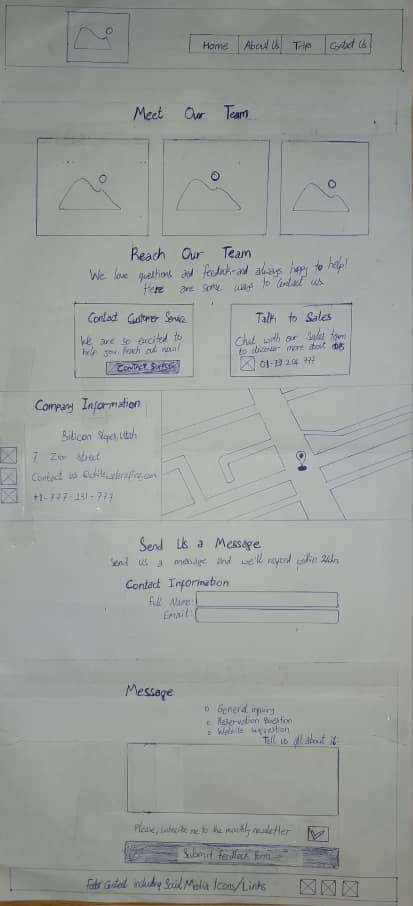 Home About Us Trips Contact Us
Meet Our Team
Reach Our Team
We love questions and feedack-and always happy to help!
Here are some ways to Contact us
Contact Customer Service
We are so excited to
help you Reach out now!
CONTACT SUPPORT
Talk to Sales
Chat with our Sales team
to discover more about
01-23 204 777
Company Information
Silicon Slopes, Utah
7 Zion Street
Contact us
+1-777-231-777
Send Us a Message
Send us a message and we'll respond within 24hrs
Contact Information
Full Name:
Email:
Message
General inquiry
Reservation Question
Website
Tell us all about it
Please, subscribe me to the monthly newsletter
Submit feedback form
Footer Content including Social Media Icons/Links